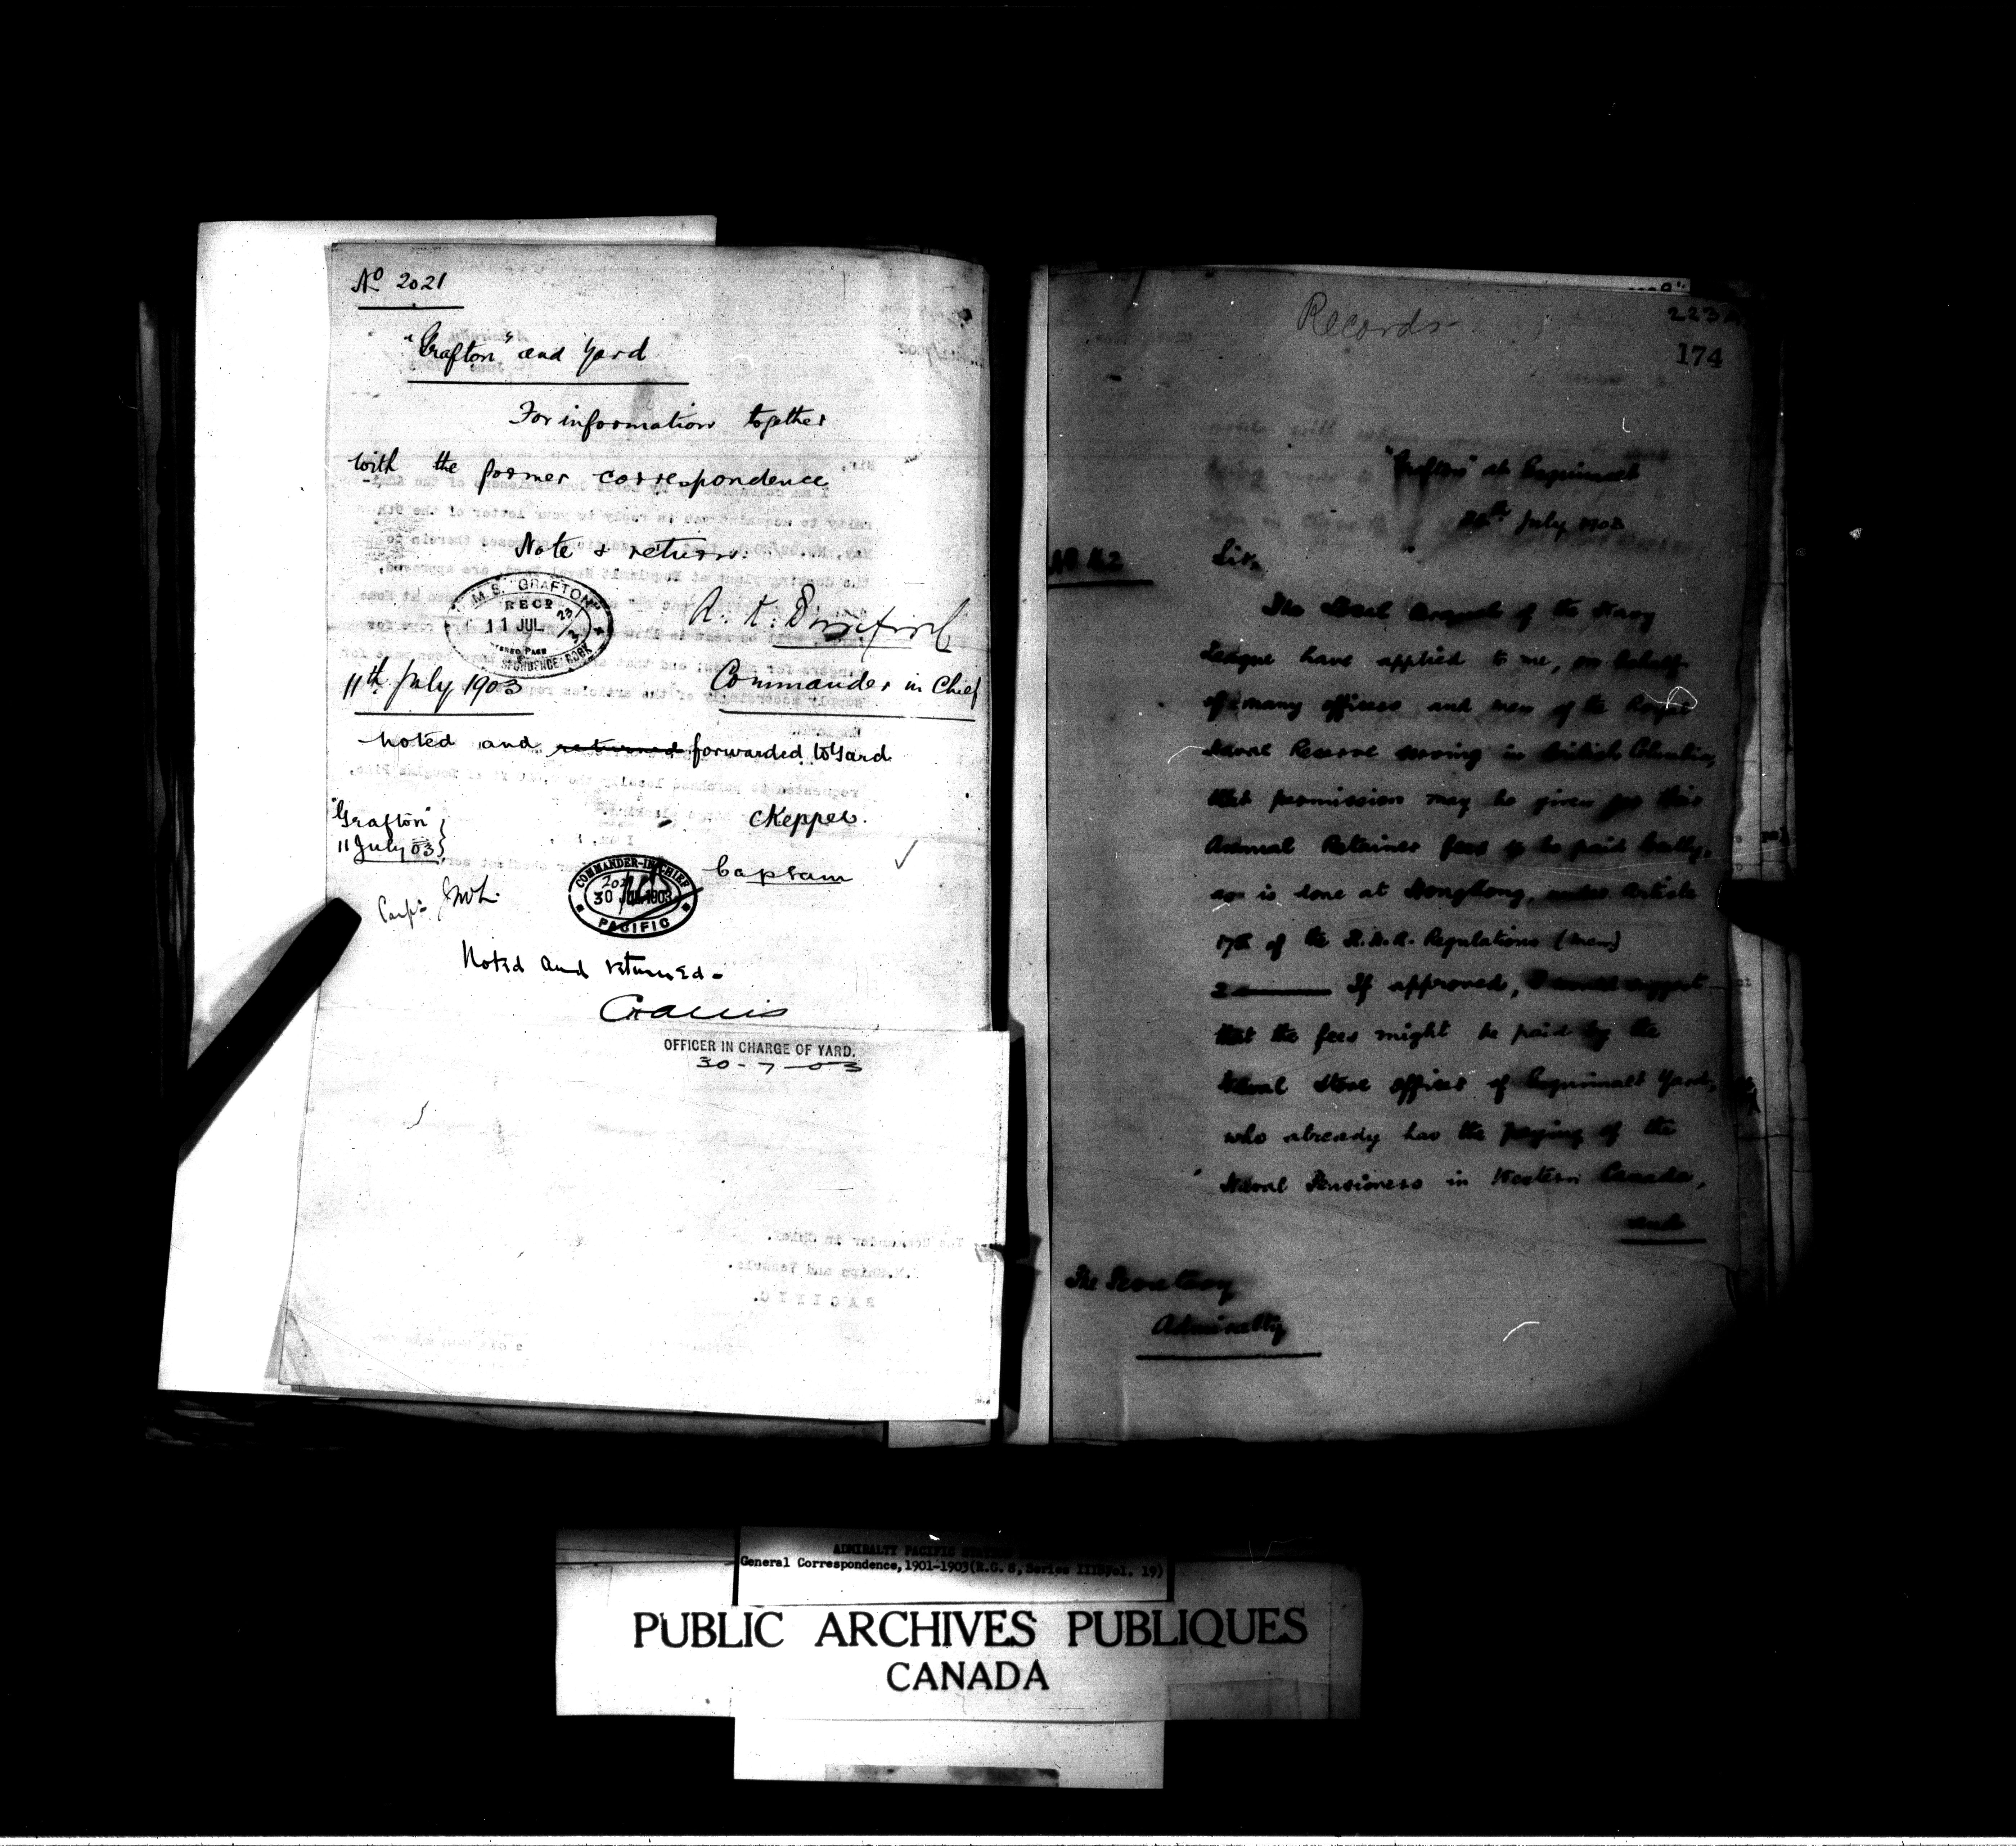 No 2021
"Grafton" and Yard
For information together
with the former correspondence
Note & return.
H.M.S. GRAFTON
RECD
11 JUL
CORRESPONDENCE BOOK
11th July 1903
Commander in Chief
Noted and returned forwarded to Yard
"Grafton"
11 July 03
CKeppel.
Captain
COMMANDER-IN-CHIEF
30 JUL 1903
PACIFIC
Noted and returned-
OFFICER IN CHARGE OF YARD.
30-7-03
Records
223
174
"Grafton" at Esquimalt
July 1903
Sir,
The Local Branch of the Navy
League have applied to me, on behalf
of many officers and men of the Royal
Naval Reserve serving in British Columbia,
that permission may be given for their
Annual Retainer fees to be paid locally,
as is done at HongKong, under Article
of the R.N.R. Regulations (Men)
2 If approved, I would suggest
that the fees might be paid by the
Naval Store Officer of Esquimalt Yard,
who already has the paying of the
Naval Pensioners in Western Canada,
and
The Secretary
Admiralty
ADMIRALTY PACIFIC STATION
General Correspondence, 1901-1903 (R.G. 8, Series IIIB, Vol. 19)
PUBLIC ARCHIVES PUBLIQUES
CANADA